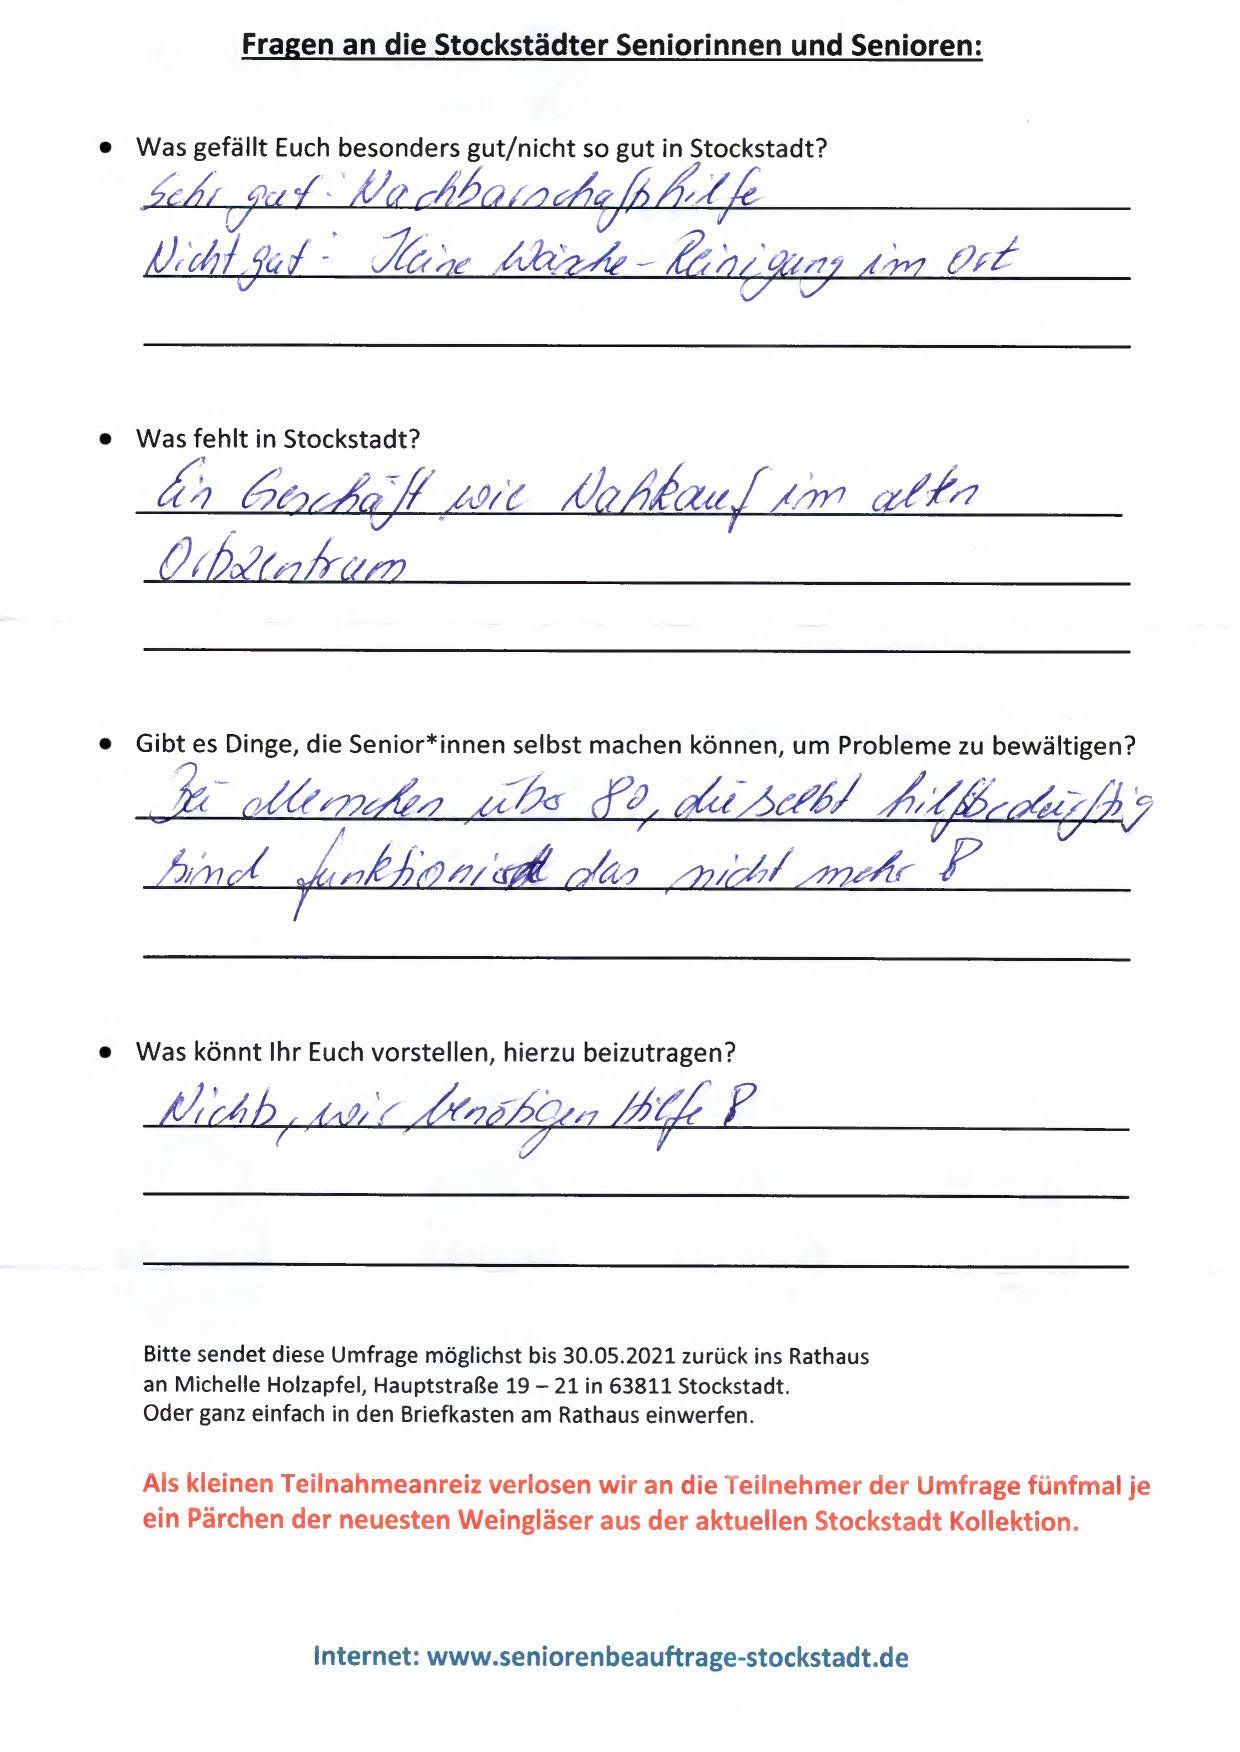 Fragen an die Stockstädter Seniorinnen und Senioren:
• Was gefällt Euch besonders gut/nicht so gut in Stockstadt?
Sehr gut: Nachbarschaftshilfe
Nicht gut: Keine Wäsche-Reinigung im Ort
• Was fehlt in Stockstadt?
Ein Geschäft wie Nahkauf im alten
Ortszentrum
• Gibt es Dinge, die Senior*innen selbst machen können, um Probleme zu bewältigen?
Bei Menschen über 80, die selbst hilfsbedürftig
sind funktioniert das nicht mehr!
• Was könnt Ihr Euch vorstellen, hierzu beizutragen?
Nichts, wir benötigen Hilfe!
Bitte sendet diese Umfrage möglichst bis 30.05.2021 zurück ins Rathaus
an Michelle Holzapfel, Hauptstraße 19 – 21 in 63811 Stockstadt.
Oder ganz einfach in den Briefkasten am Rathaus einwerfen.
Als kleinen Teilnahmeanreiz verlosen wir an die Teilnehmer der Umfrage fünfmal je
ein Pärchen der neuesten Weingläser aus der aktuellen Stockstadt Kollektion.
Internet: www.seniorenbeauftrage-stockstadt.de